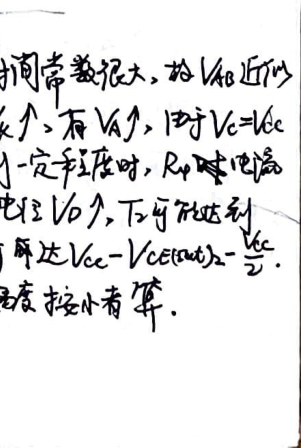 时间常数很大，故 V_AB 近似
↑，有 V_A↑，由于 V_C=V_CC
一定程度时，R 电流
电位 V_D↑，T_2 可能达到
可解达 V_CC-V_CE(sat)2-V_CC/2.
幅度按小者算.